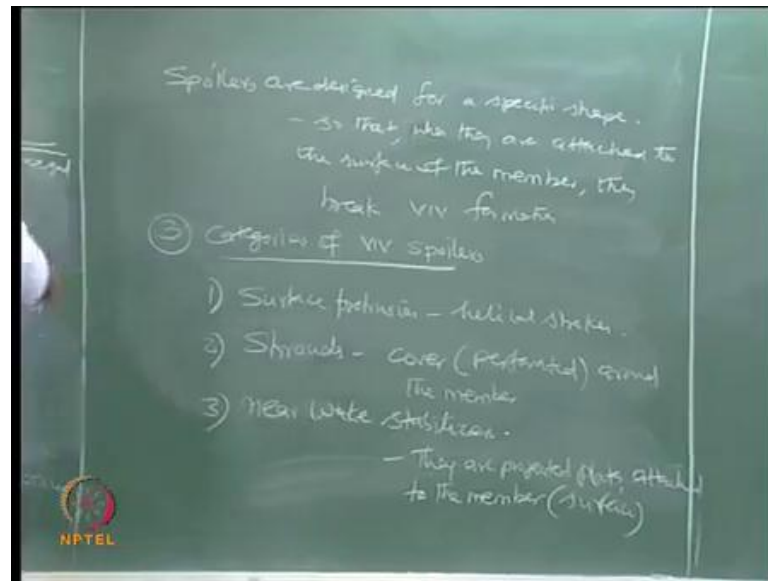 Spoilers are designed for a specific shape.
- so that, when they are attached to
the surface of the member, they
break VIV formation
③ Categories of VIV spoilers
1) Surface protrusion - helical strakes.
2) Shrouds - cover (perforated) around
the member
3) Near wake stabilizers.
- They are projected plates, attached
to the member (surface)
NPTEL